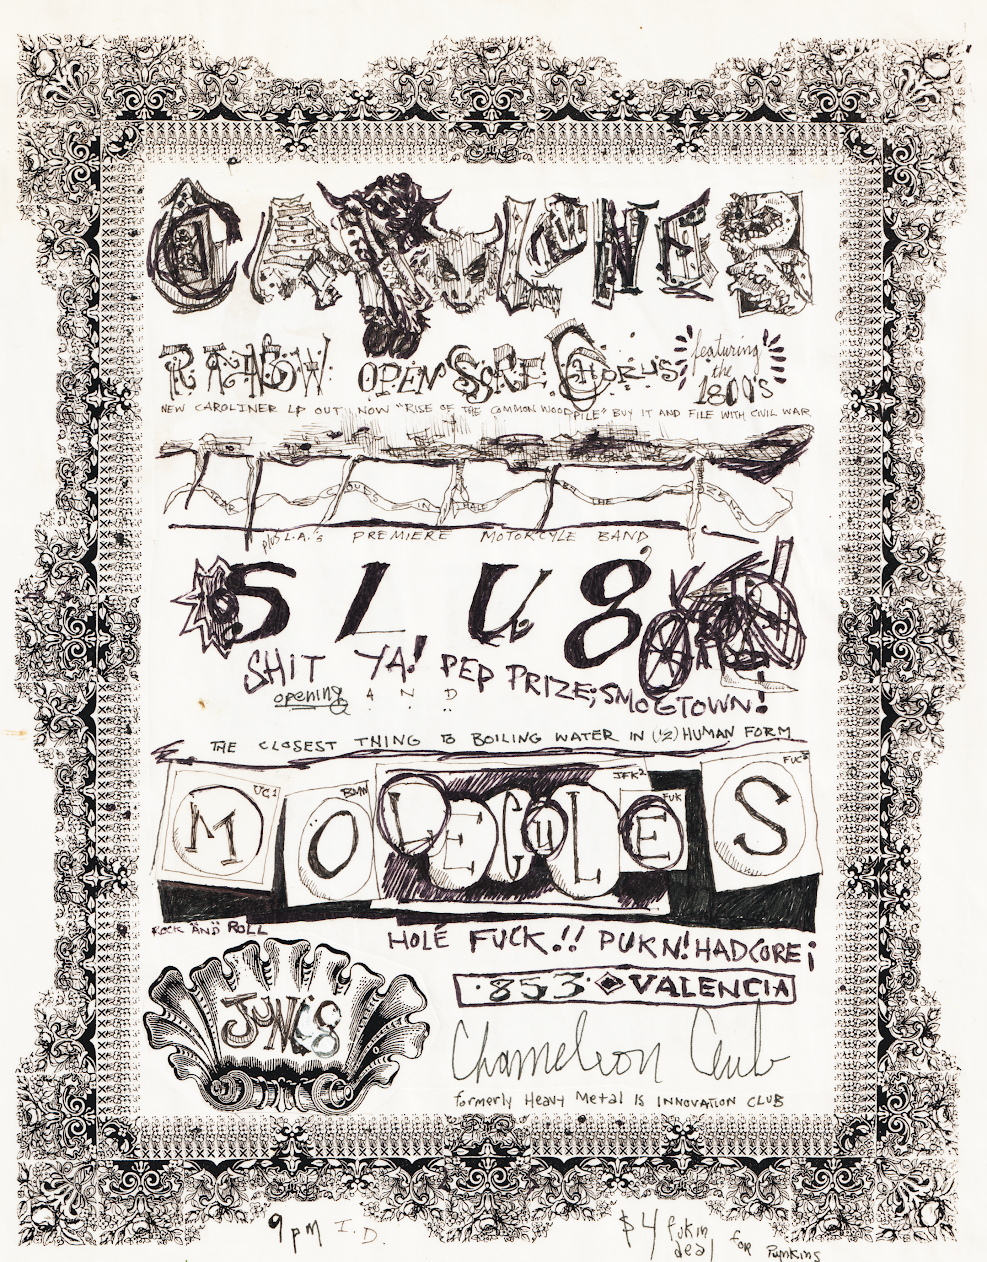 CAROLINER
RAINBOW OPEN SORE CHORUS featuring the 1800's
NEW CAROLINER LP OUT NOW "RISE OF THE COMMON WOODPILE" BUY IT AND FILE WITH CIVIL WAR
IN THE
plus L.A.'s PREMIERE MOTORCYLE BAND
SLUG
SHIT YA! PEP PRIZE; SMOGTOWN!
opening AND
THE CLOSEST THING TO BOILING WATER IN (½) HUMAN FORM
UC1 BMW JFK2 FUK FUC3
MOLECULES
ROCK AND ROLL
HOLÉ FUCK!! PUKN! HADCORE¡
853 VALENCIA
JUNE 8
Chameleon Club
formerly Heavy Metal Is INNOVATION CLUB
9 pm I.D.
$4 fukin deal for Pumkins